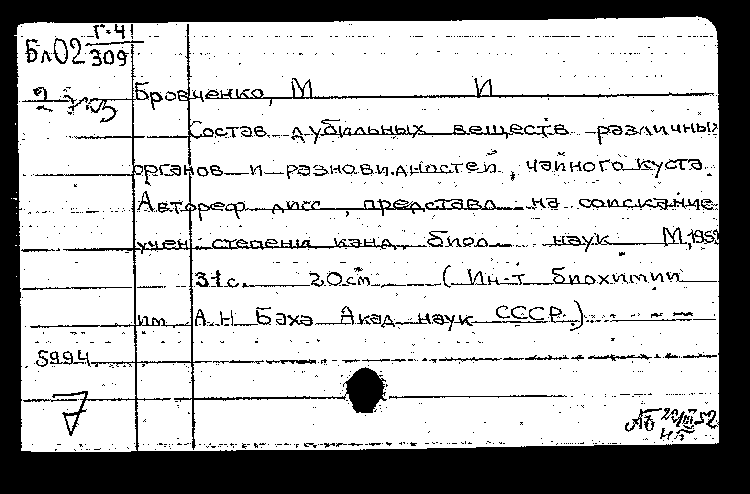 Бл02 Г-4
309
2 экз
Бровченко, М И
Состав дубильных веществ различных
органов и разновидностей, чайного куста.
Автореф дисс, представл на соискание
учен степени канд. биол наук М, 1952
31с. 20см (Ин-т биохимии
им А.Н Баха Акад наук СССР.)
5994
АБ 29/III 52